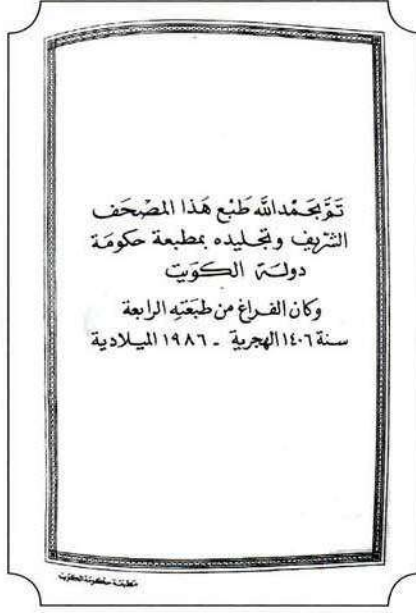 تَمَّ بحَمْدِ اللَّه طَبْع هَذا المصْحَف
الشريف وتجليده بمطبعة حكومَة
دولــة الكوَيت
وكان الفراغ من طبعَتِه الرابعة
سـنة ١٤٠٦ الهجرية - ١٩٨٦ الميلادية
مطبعة حكومة الكويت